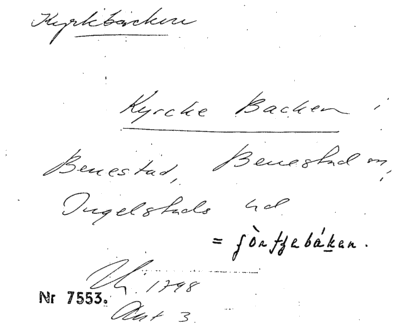 Kyrkbacken
Kyrcke Backen i
Benestad, Benestad sn,
Ingelstads hd
1798
Nr 7553.
Akt 3